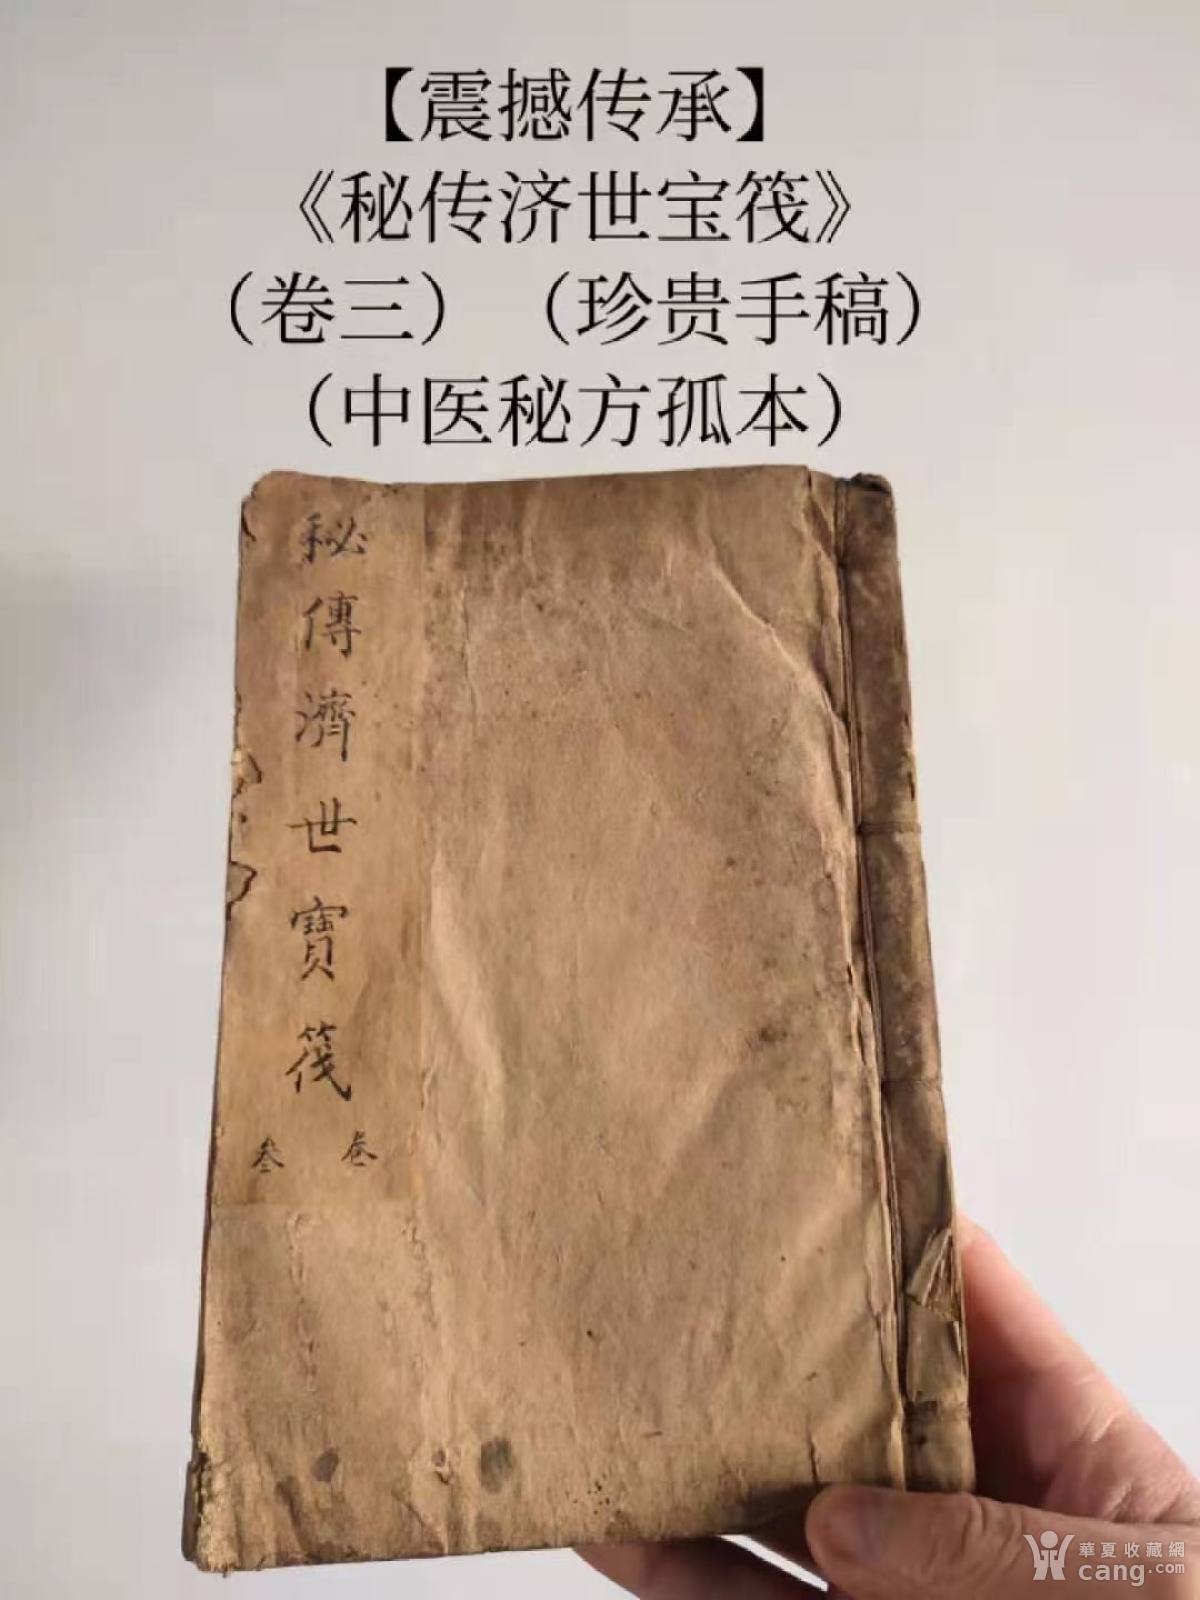 【震撼传承】
《秘传济世宝筏》
（卷三）（珍贵手稿）
（中医秘方孤本）
秘傳濟世寶筏
卷
叁
華夏收藏網
cang.com